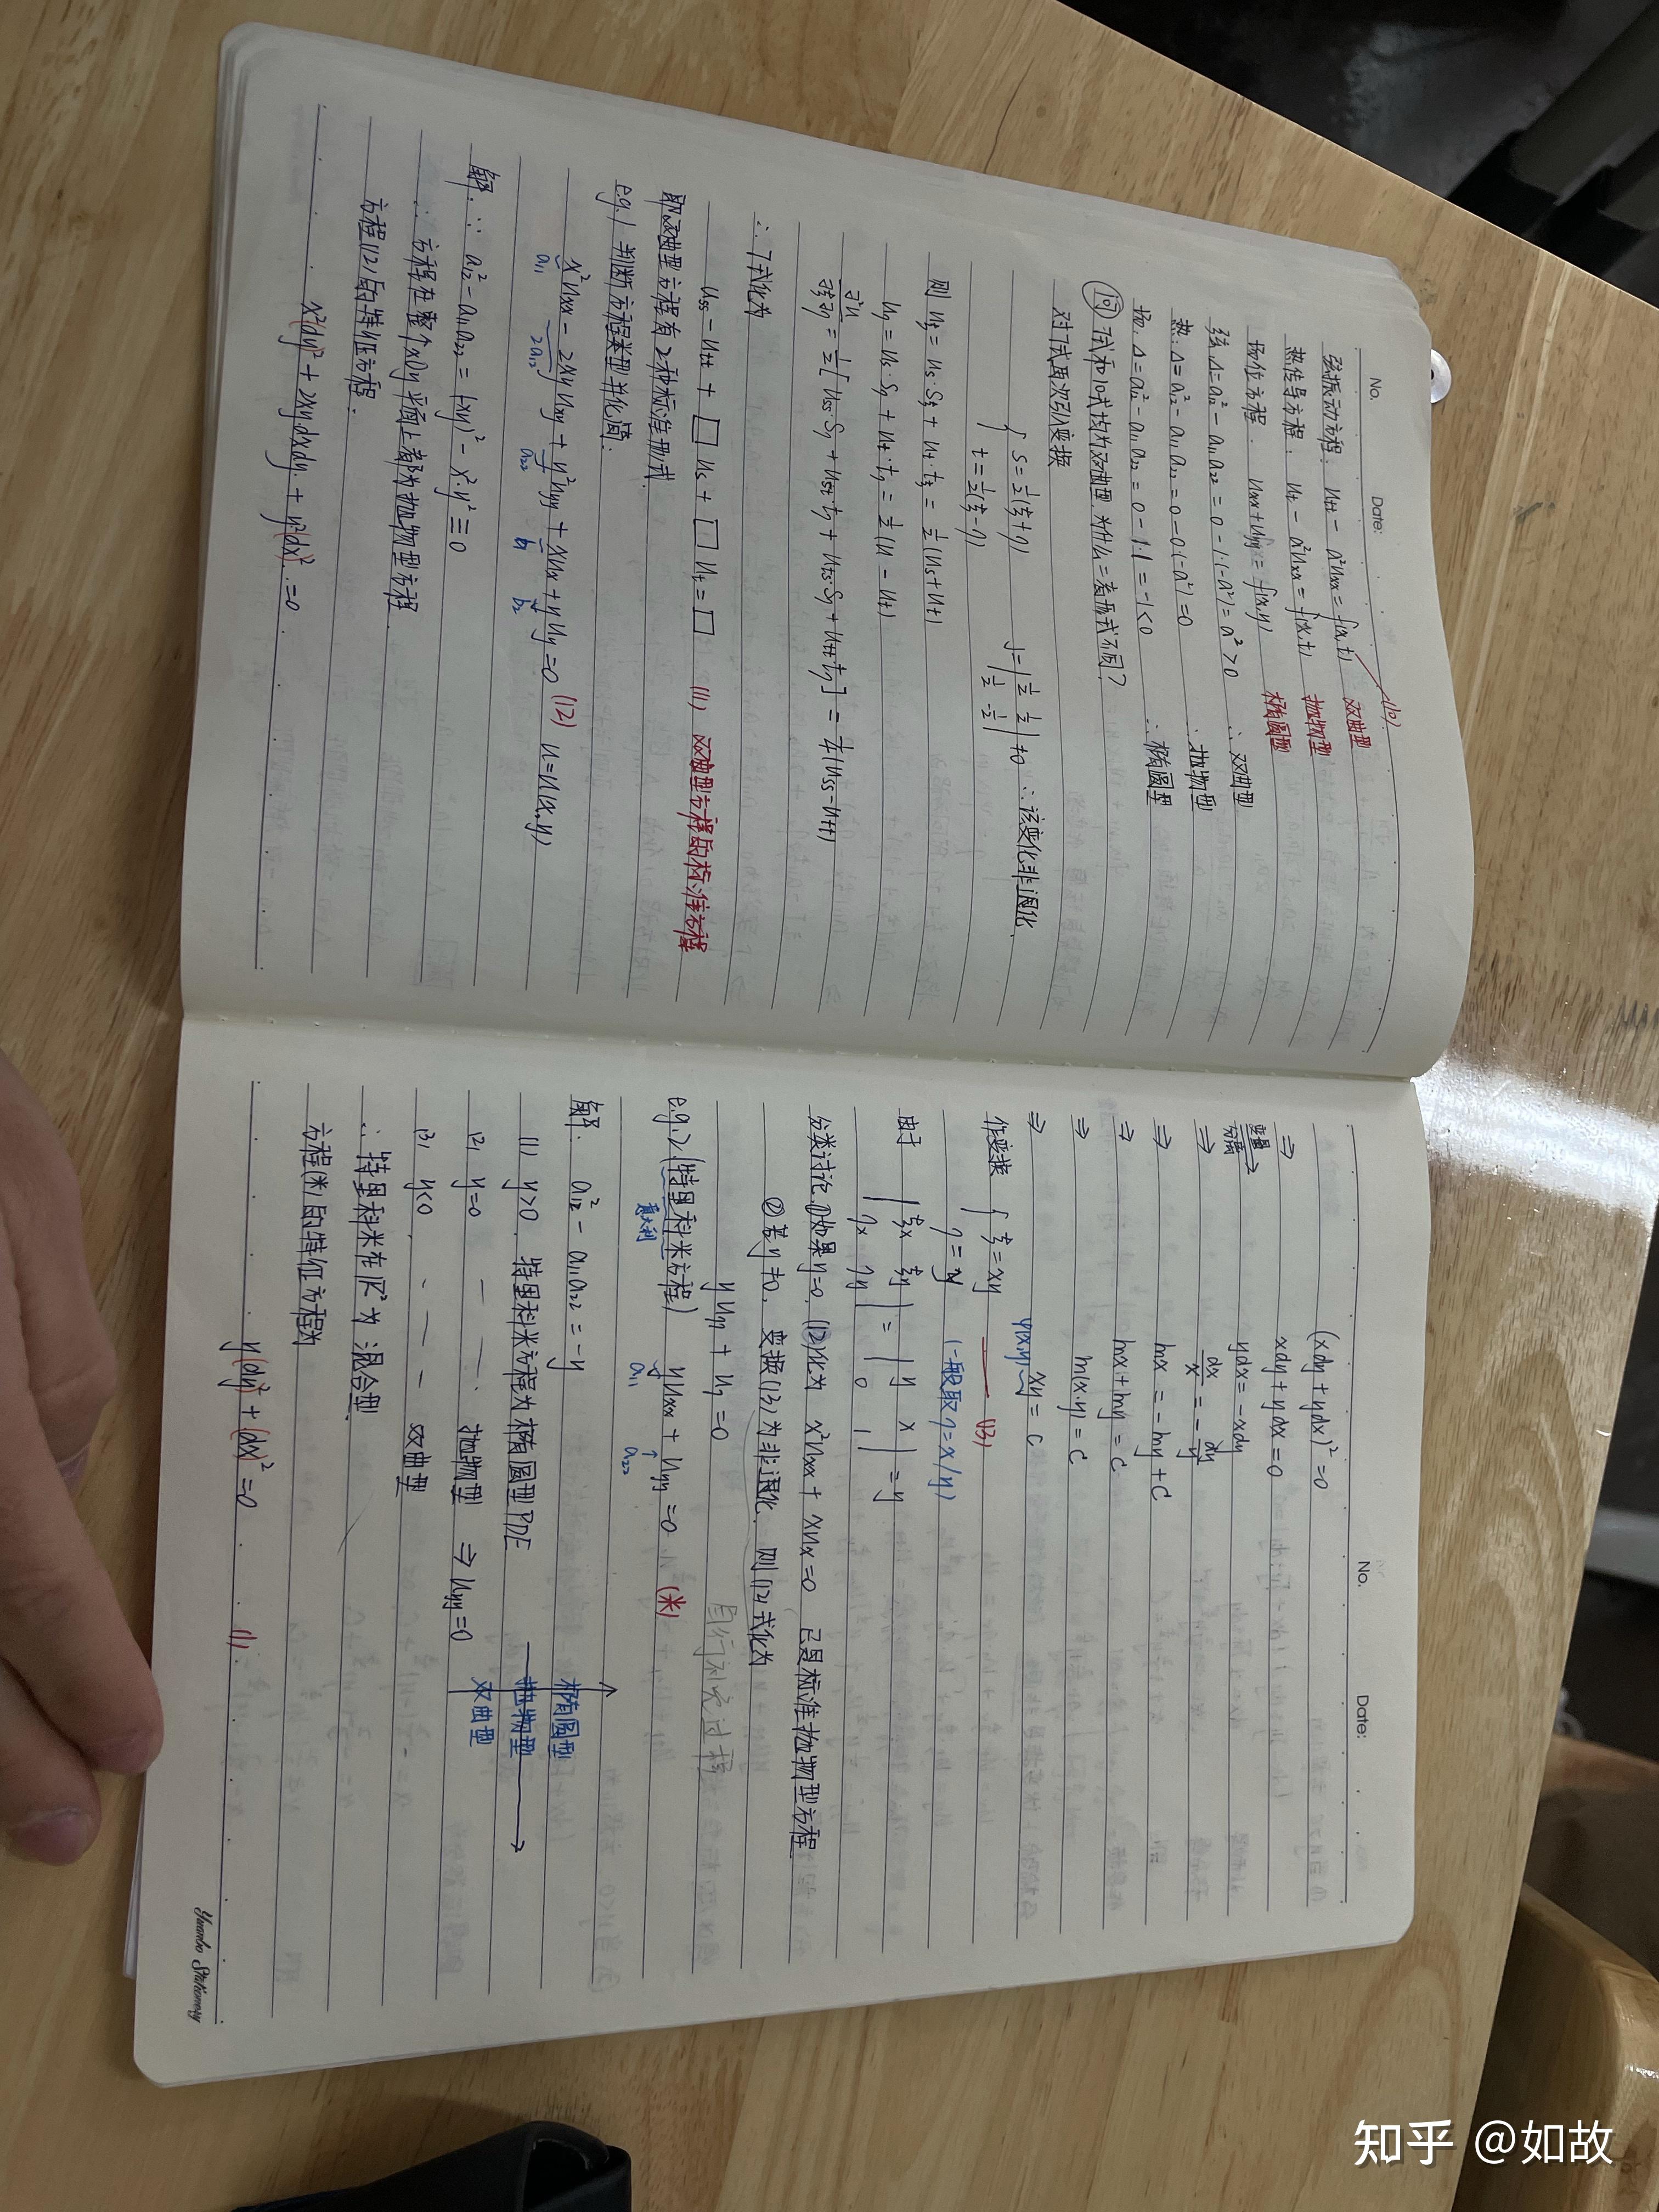 No.
Date:
(10)
弦振动方程: u_tt - a²u_xx = f(x,t) 双曲型
热传导方程. u_t - a²u_xx = f(x,t) 抛物型
场位方程. u_xx + u_yy = f(x,y) 椭圆型
弦. Δ = a₁₂² - a₁₁a₂₂ = 0 - 1·(-a²) = a² > 0 ∴ 双曲型
热: Δ = a₁₂² - a₁₁a₂₂ = 0 - 0·(-a²) = 0 ∴ 抛物型
场. Δ = a₁₂² - a₁₁a₂₂ = 0 - 1·1 = -1 < 0 ∴ 椭圆型
问 7式和10式均为双曲型, 为什么二者形式不同?
对7式再次引入变换
{ s = ½(ξ+η)
t = ½(ξ-η)
J = | ½ ½ |
| ½ -½ | ≠ 0 ∴ 该变化非退化.
则 u_ξ = u_s·s_ξ + u_t·t_ξ = ½(u_s + u_t)
u_η = u_s·s_η + u_t·t_η = ½(u - u_t)
∂²u/∂ξ∂η = ½[u_ss·s_η + u_st·t_η + u_ts·s_η + u_tt·t_η] = ¼(u_ss - u_tt)
∴ 7式化为
u_ss - u_tt + □ u_s + □ u_t = □ (11) 双曲型方程的标准方程
即双曲型方程有2种标准形式.
e.g.1 判断方程类型并化简:
x²u_xx - 2xy u_xy + y²u_yy + x u_x + y u_y = 0 (12) u = u(x,y)
a₁₁ 2a₁₂ a₂₂ b₁ b₂
解. ∵ a₁₂² - a₁₁a₂₂ = (-xy)² - x²·y² ≡ 0
∴ 方程在整个xOy平面上都为抛物型方程.
方程(12)的特征方程:
x²(dy)² + 2xy dxdy + y²(dx)² = 0
No.
Date:
(xdy + ydx)² = 0
⇒ xdy + ydx = 0
变量分离 → ydx = -xdy
⇒ dx/x = -dy/y
⇒ lnx = -lny + C
⇒ lnx + lny = C
⇒ ln(x·y) = C
⇒ φ(x,y) xy = C
作变换 { ξ = xy
η = y (一般取η = x/y) (13)
由于 | ξx ξy | = | y x | = y
| ηx ηy | | 0 1 |
分类讨论. ①如果y=0, (12)化为 x²u_xx + xu_x = 0 已是标准抛物型方程
②若y≠0, 变换(13)为非退化. 则(12)式化为
y u_ηη + u_η = 0 自行补充过程
e.g.2 (特里科米方程) y u_xx + u_yy = 0 (米)
意大利 a₁₁ a₂₂
解: a₁₂² - a₁₁a₂₂ = -y
(1) y>0. 特里科米方程为椭圆型PDE
(2) y=0 — — . 抛物型 ⇒ u_yy = 0
(3) y<0. - — — 双曲型
椭圆型
抛物型
双曲型
∴ 特里科米在R²为混合型.
方程(米)的特征方程为
y(dy)² + (dx)² = 0 (1)
Yuanbo Stationery
知乎 @如故